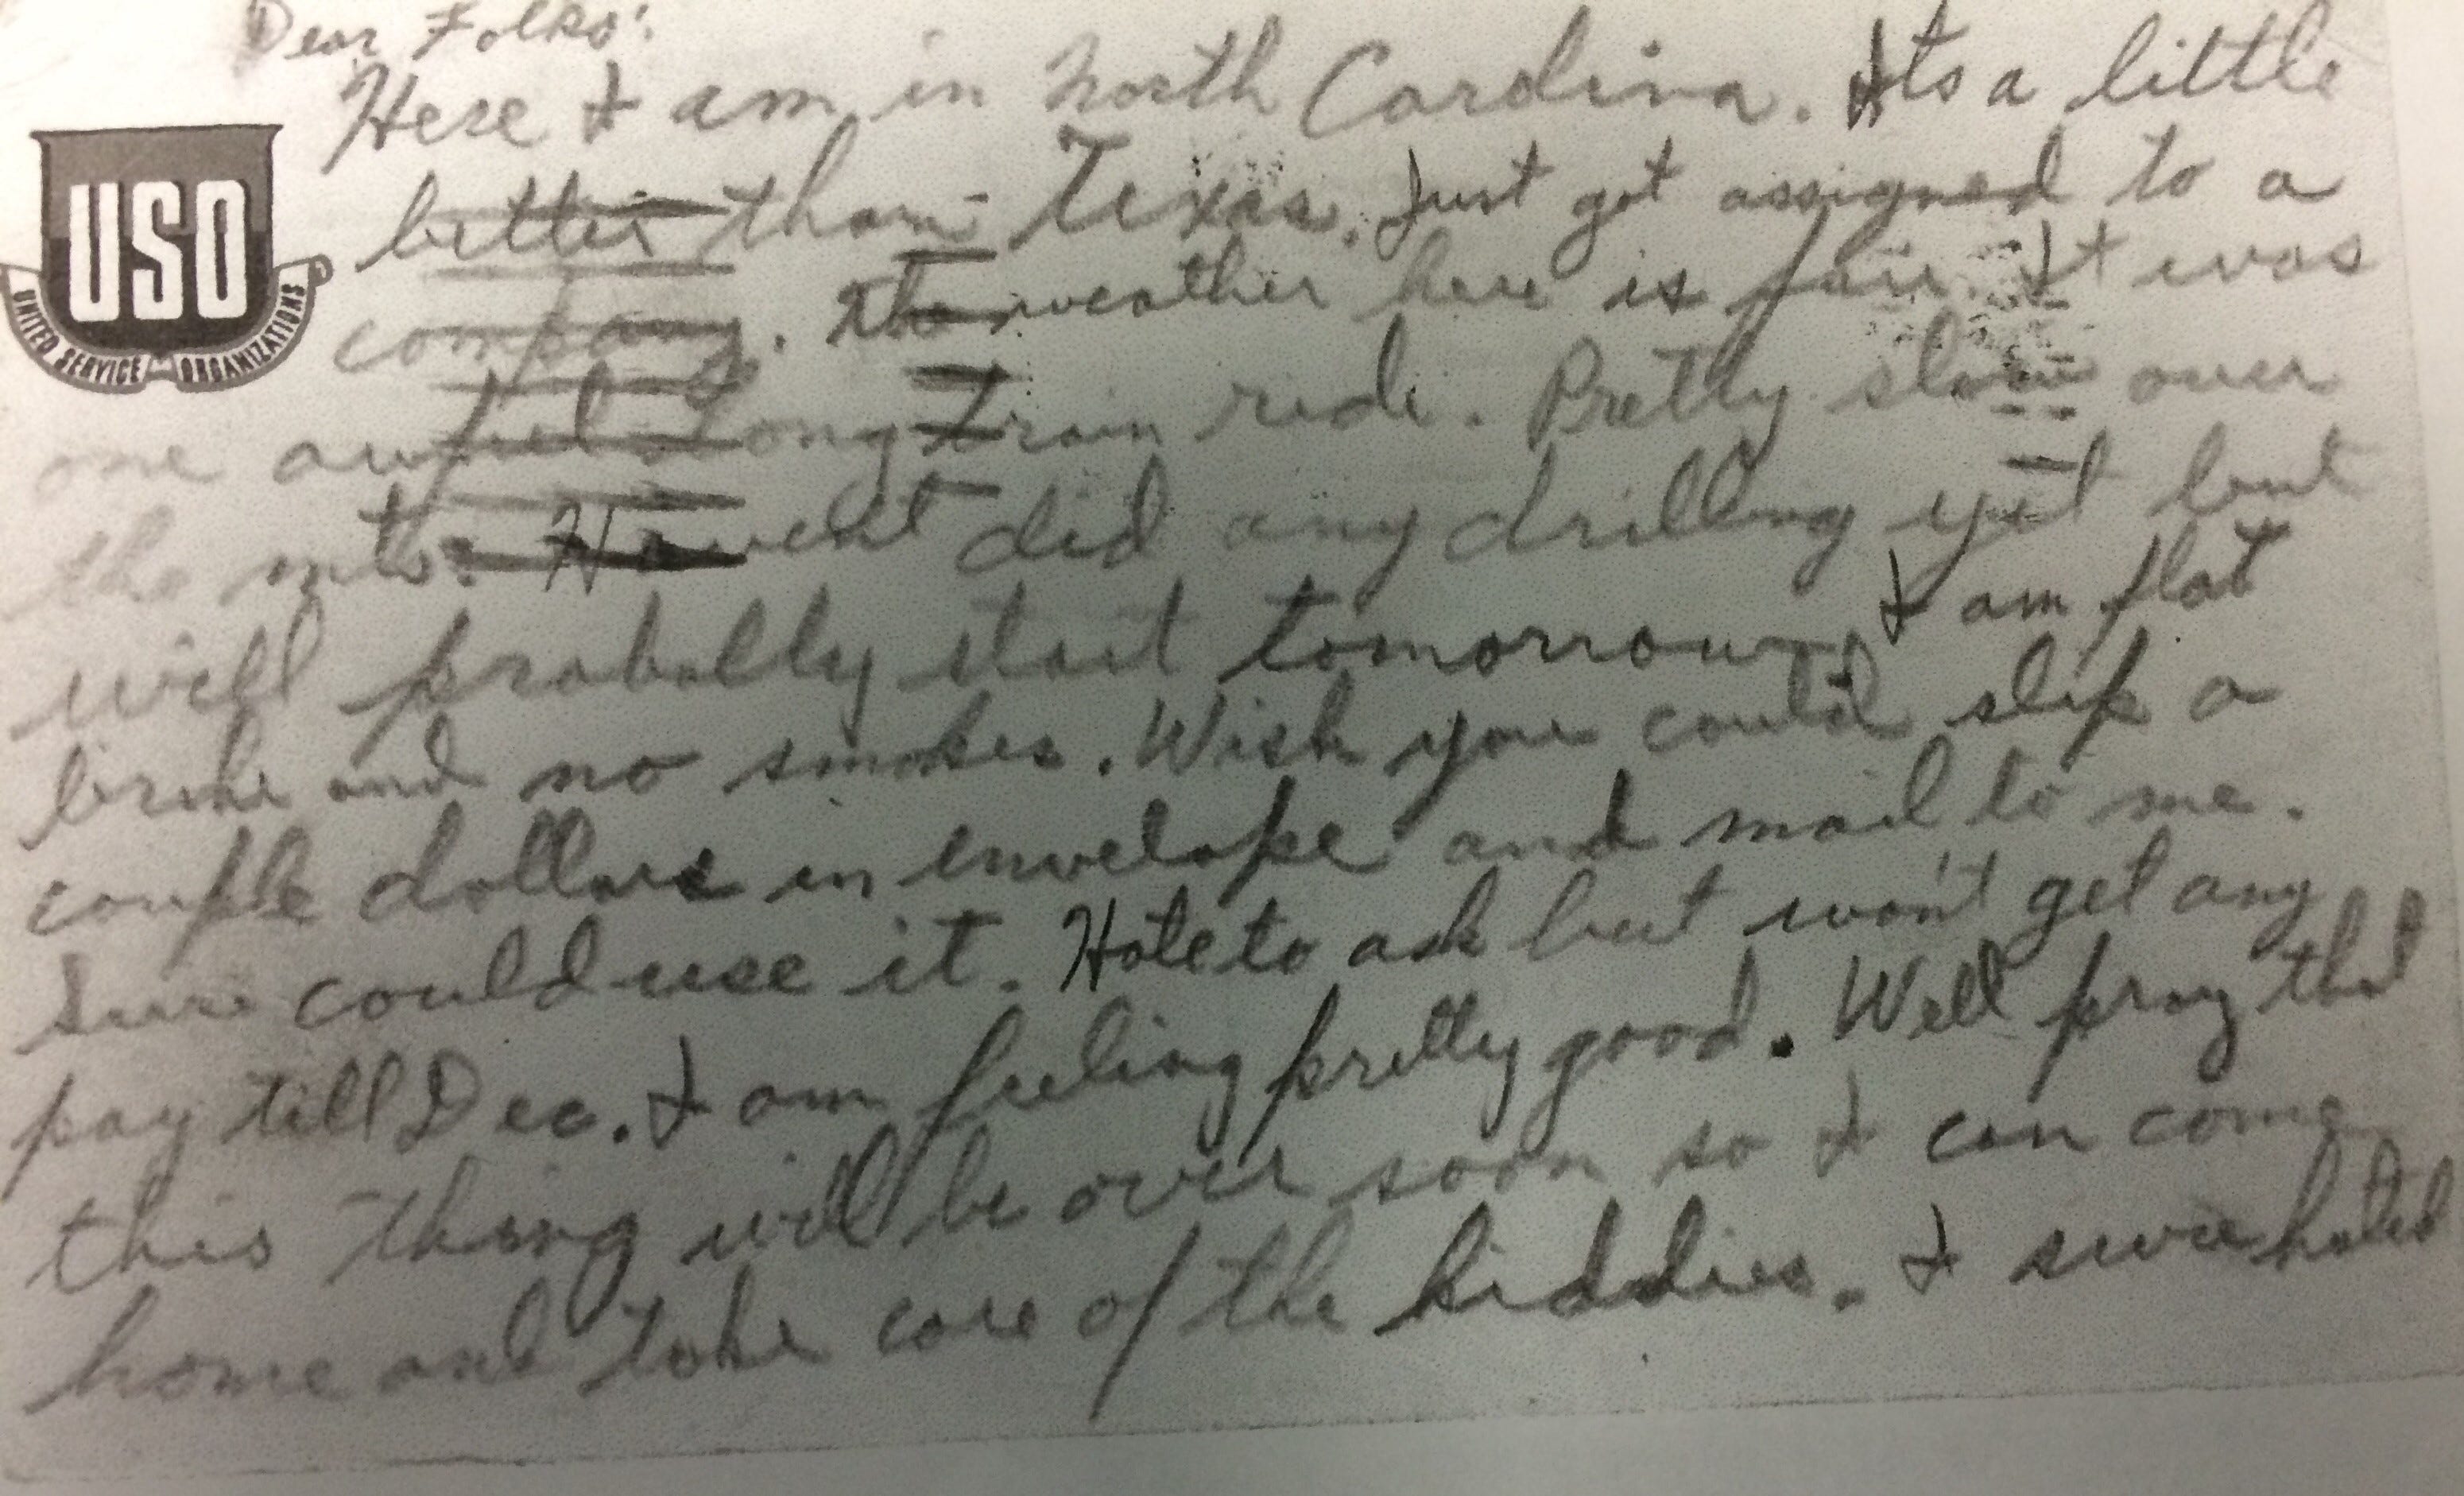 Dear Folks:
Here I am in North Carolina. Its a little
better than Texas. Just got assigned to a
company. The weather here is fair. It was
one awful long train ride. Pretty slow over
the mts. Havent did any drilling yet but
will probally start tomorrow. I am flat
broke and no smokes. Wish you could slip a
couple dollars in envelope and mail to me.
Sure could use it. Hate to ask but won't get any
pay till Dec. I am feeling pretty good. Well pray that
this thing will be over soon so I can come
home and take care of the kiddies. I sure hated
USO
UNITED SERVICE ORGANIZATIONS